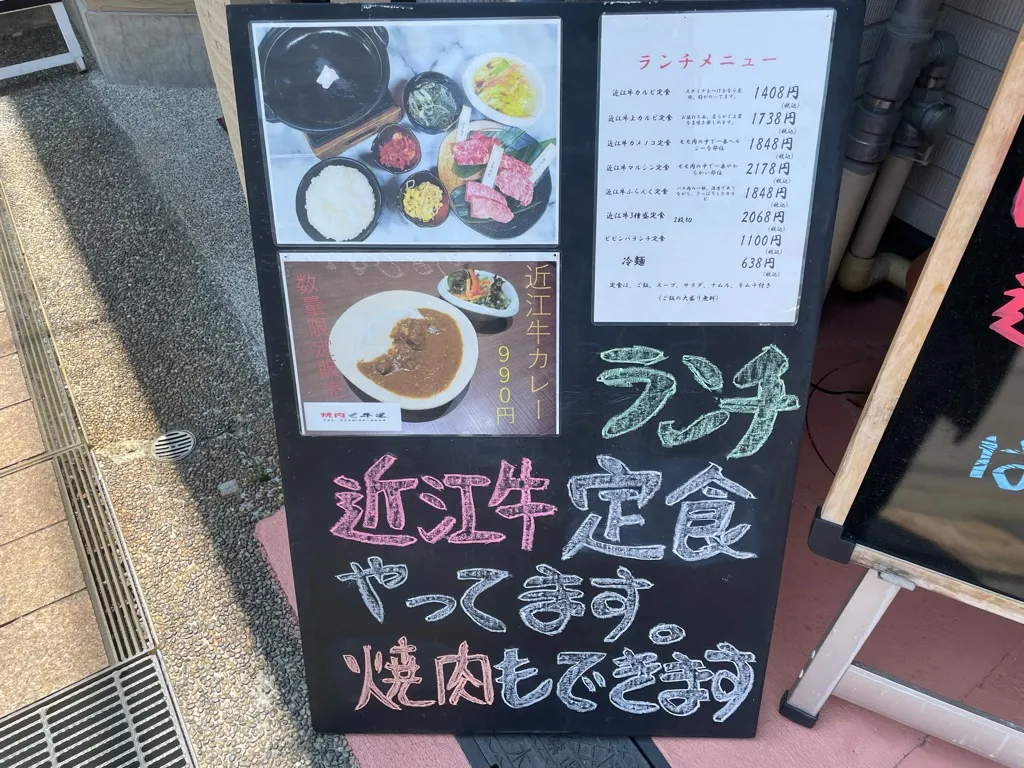 ランチメニュー
近江牛カルビ定食 1408円
(税込)
近江牛上カルビ定食 1738円
(税込)
近江牛カメノコ定食 モモ肉の中で一番ヘルシーな部位 1848円
(税込)
近江牛マルシン定食 モモ肉の中で一番やわらかい部位 2178円
(税込)
近江牛ふらんく定食 1848円
(税込)
近江牛3種盛定食 2枚切 2068円
(税込)
ビビンバランチ定食 1100円
(税込)
冷麺 638円
(税込)
定食は、ご飯、スープ、サラダ、ナムル、キムチ付き
(ご飯の大盛り無料)
近江牛カレー
990円
数量限定
焼肉
ランチ
近江牛定食
やってます。
焼肉もできます